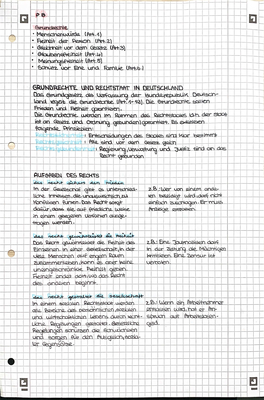 P B
Grundrechte
• Menschenwürde (Art. 1)
• Freiheit der Person (Art. 2)
• Gleichheit vor dem Gesetz (Art. 3)
• Glaubensfreiheit (Art. 4)
• Meinungsfreiheit (Art. 5)
• Schutz vor Ehe und Familie (Art. 6)
GRUNDRECHTE UND RECHTSTAAT IN DEUTSCHLAND
Das Grundgesetz, die Verfassung der Bundesrepublik Deutsch-
land legt die Grundrechte (Art. 1-19). Die Grundrechte sollen
Frieden und Freiheit garantieren.
Die Grundrechte werden im Rahmen des Rechtsstaates, der
ist an Gesetz und Ordnung gebunden garantiert. Es existieren
folgende Prinzipien:
Entscheidungen des Staates sind klar bestimmt
Alle sind vor dem Gesetz gleich
Regierung, Verwaltung und Justiz sind an das
Recht gebunden
AUFGABEN DES RECHTS
das Recht sichert den Frieden
In der Gesellschaft gibt es unterschied-
liche Interessen, die unausweichlich zu
Konflikten führen. Das Recht sorgt
dafür, dass sie auf friedliche Weise
in einem geregelten Verfahren ausge-
tragen werden.
z.B.: Wer von einem ande-
ren beleidigt wird, darf nicht
einfach zuschlagen. Er muss
Anzeige erstatten.
das Recht gewährleistet die Freiheit
Das Recht gewährleistet die Freiheit des
Einzelnen. In einer Gesellschaft, in der
viele Menschen auf engem Raum
zusammenleben, kann es aber keine
uneingeschränkte Freiheit geben.
Freiheit endet dort, wo das Recht
des anderen beginnt.
z.B.: Eine Journalistin darf
in der Zeitung die Mächtigen
kritisieren. Eine Zensur ist
verboten.
das Recht gestaltet die Gesellschaft
In einem sozialen Rechtsstaat werden
die Bereiche des persönlichen, sozialen
und wirtschaftlichen Lebens durch recht-
liche Regelungen gestaltet. Gesetzliche
Regelungen schützen die Schwächeren
und sorgen für den Ausgleich sozia-
ler Gegensätze.
z.B.: Wenn ein Arbeitnehmer
entlassen wird, hat er An-
spruch auf Arbeitslosen-
geld.